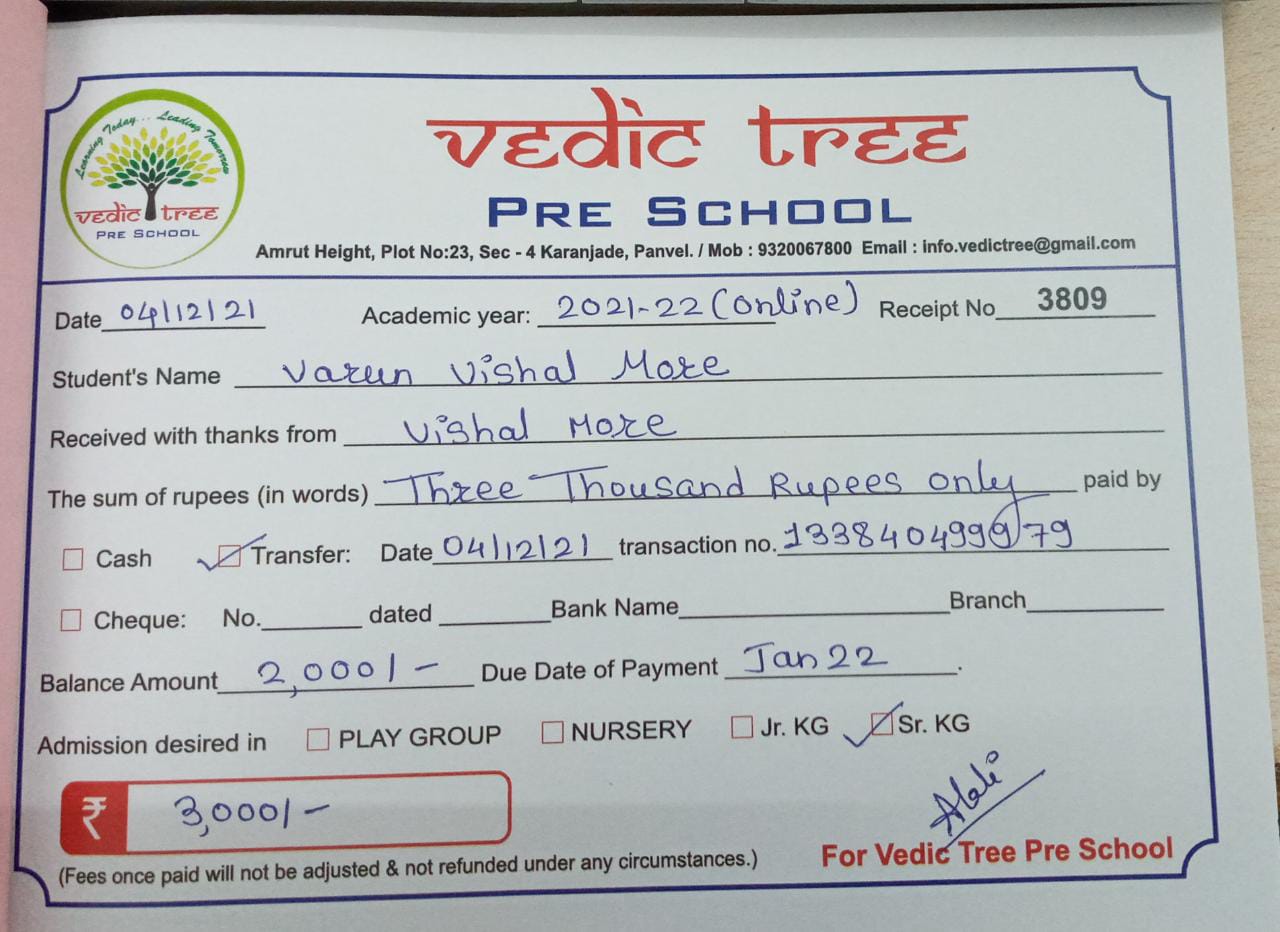 Learning Today... Leading Tomorrow
vedic tree
PRE SCHOOL
vedic tree
PRE SCHOOL
Amrut Height, Plot No:23, Sec - 4 Karanjade, Panvel. / Mob : 9320067800 Email : info.vedictree@gmail.com
Date 04/12/21 Academic year: 2021-22 (online) Receipt No 3809
Student's Name Varun Vishal More
Received with thanks from Vishal More
The sum of rupees (in words) Three Thousand Rupees only paid by
Cash Transfer: Date 04/12/21 transaction no. 133840499979
Cheque: No. dated Bank Name Branch
Balance Amount 2,000/- Due Date of Payment Jan 22 .
Admission desired in PLAY GROUP NURSERY Jr. KG Sr. KG
₹ 3,000/-
For Vedic Tree Pre School
(Fees once paid will not be adjusted & not refunded under any circumstances.)